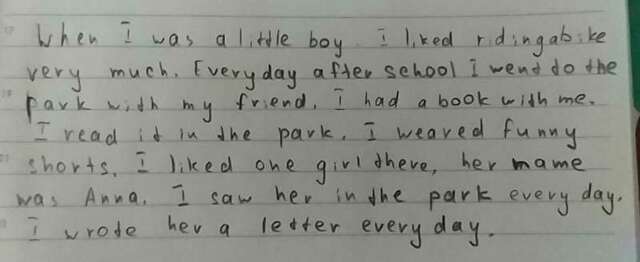 When I was a little boy. I liked riding a bike
very much. Every day after school I went to the
park with my friend. I had a book with me.
I read it in the park. I weared funny
shorts. I liked one girl there, her name
was Anna. I saw her in the park every day.
I wrote her a letter every day.